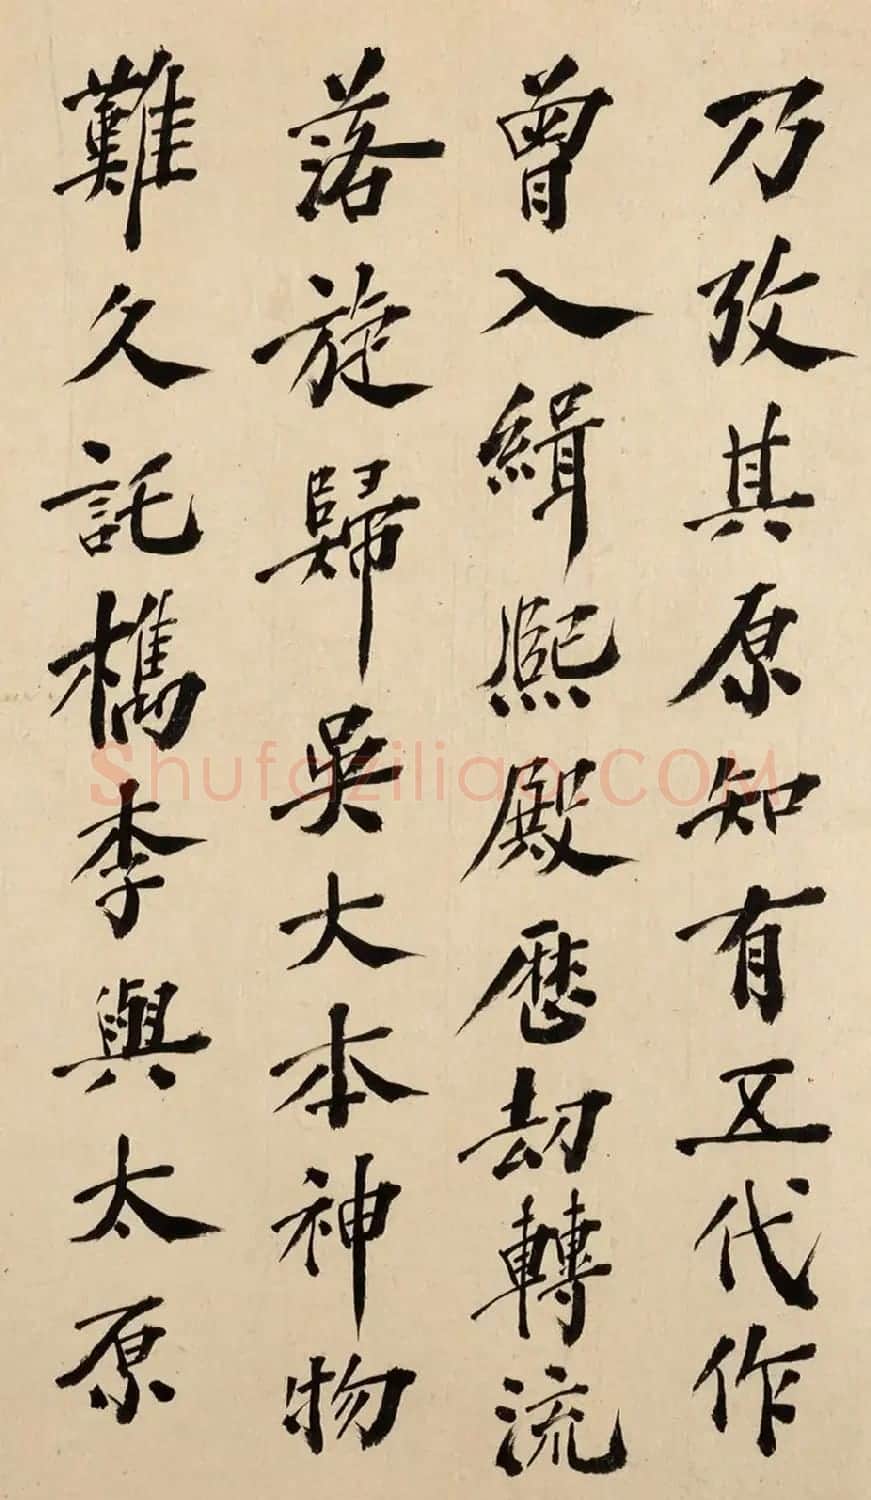 乃攷其原知有五代作
曾入緝熙殿歷劫轉流
落旋歸吳大本神物
難久託檇李與太原
Shufaziliao.COM